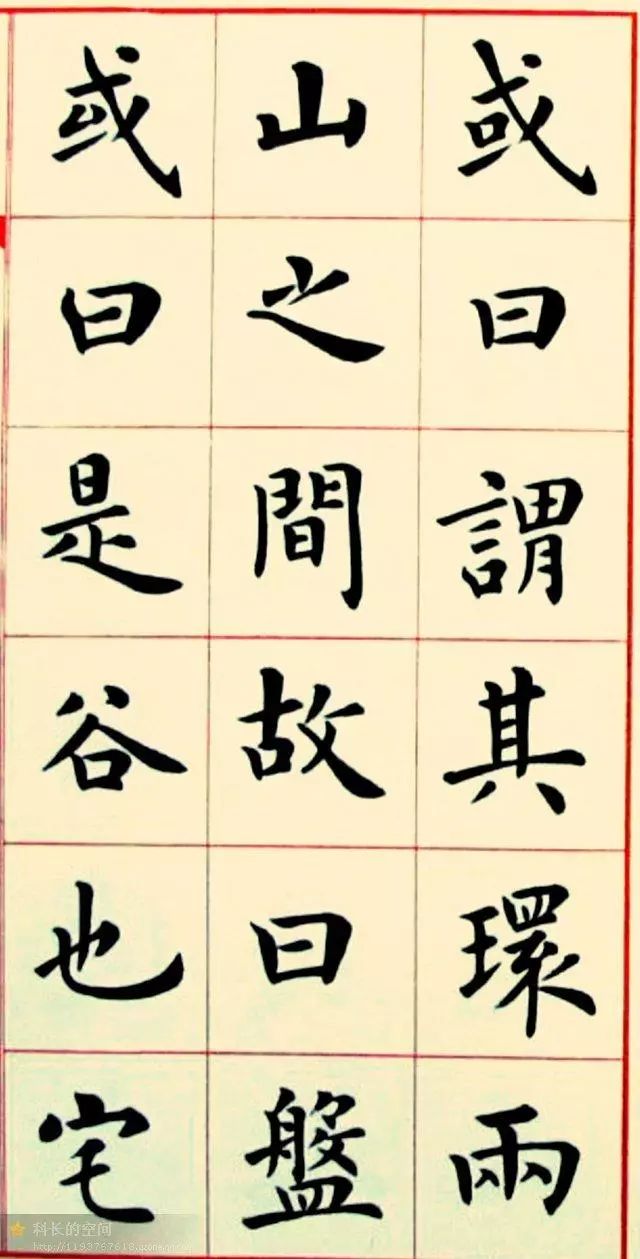 或曰謂其環兩
山之間故曰盤
或曰是谷也宅
科长的空间
http://1193767618.qzone.qq.com